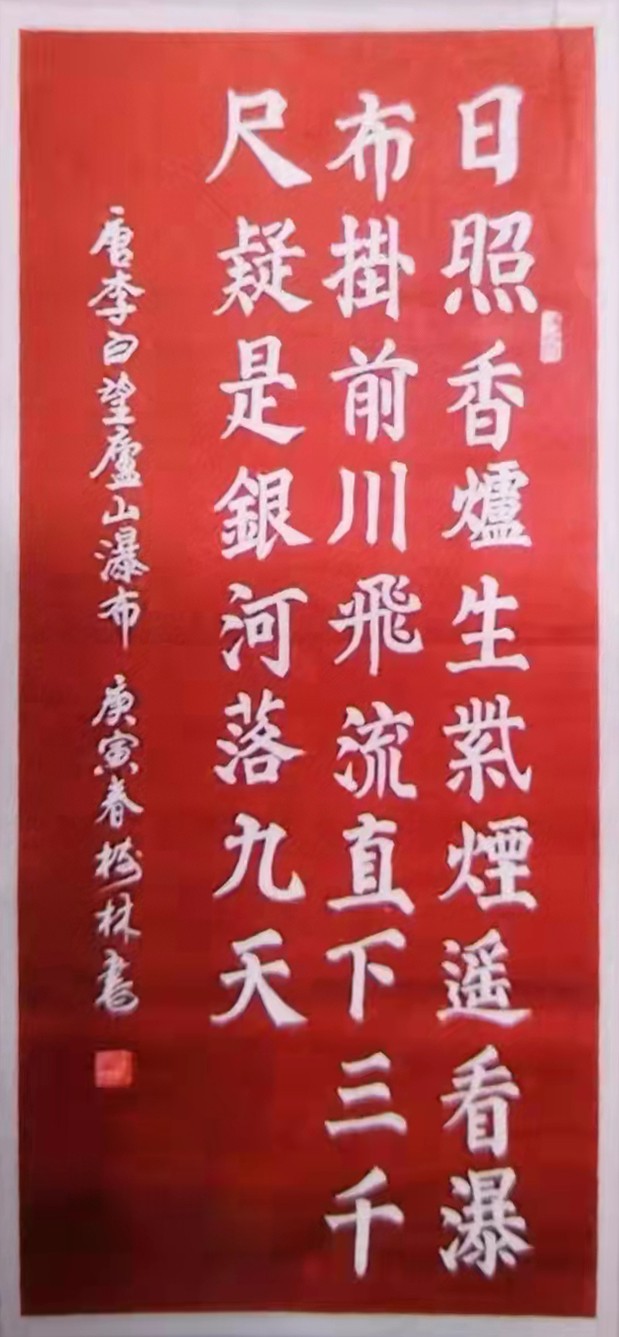 日照香爐生紫煙遥看瀑
布掛前川飛流直下三千
尺疑是銀河落九天
唐李白望廬山瀑布 庚寅春樹林書